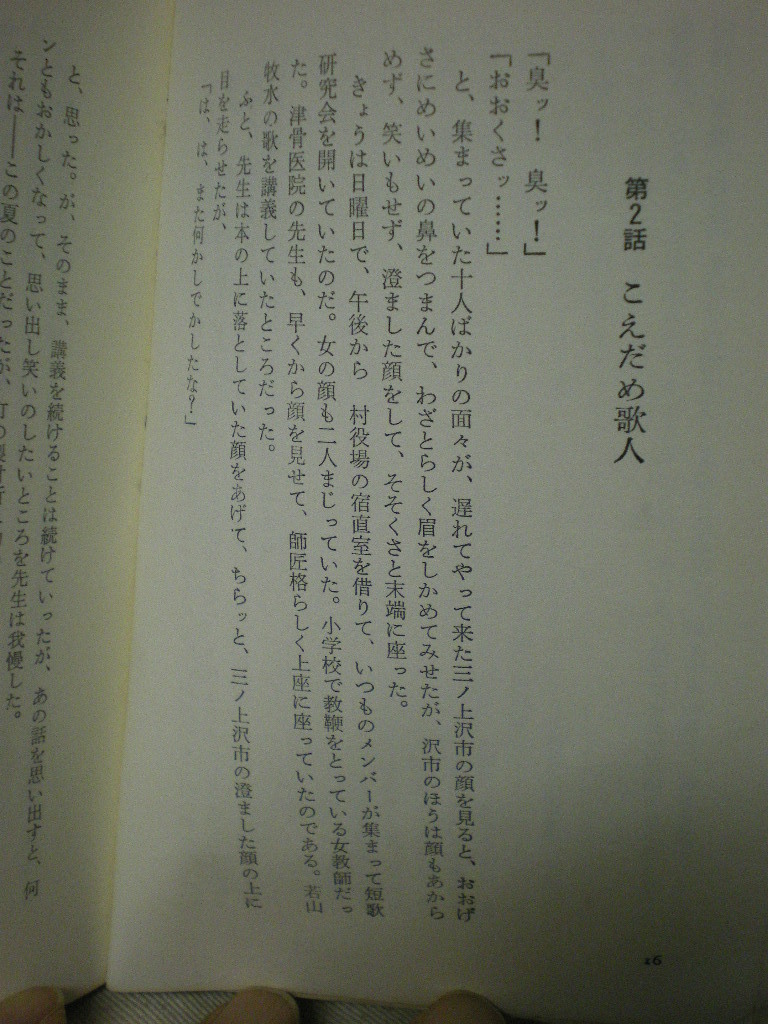 第2話　こえだめ歌人
「臭ッ！　臭ッ！」
「おおくさッ……」
と、集まっていた十人ばかりの面々が、遅れてやって来た三ノ上沢市の顔を見ると、おおげ
さにめいめいの鼻をつまんで、わざとらしく眉をしかめてみせたが、沢市のほうは顔もあから
めず、笑いもせず、澄ました顔をして、そそくさと末端に座った。
きょうは日曜日で、午後から　村役場の宿直室を借りて、いつものメンバーが集まって短歌
研究会を開いていたのだ。女の顔も二人まじっていた。小学校で教鞭をとっている女教師だっ
た。津骨医院の先生も、早くから顔を見せて、師匠格らしく上座に座っていたのである。若山
牧水の歌を講義していたところだった。
ふと、先生は本の上に落としていた顔をあげて、ちらッと、三ノ上沢市の澄ました顔の上に
目を走らせたが、
「は、は、また何かしでかしたな？」
16
と、思った。が、そのまま、講義を続けることは続けていったが、あの話を思い出すと、何
ンともおかしくなって、思い出し笑いのしたいところを先生は我慢した。
それは――この夏のことだったが、